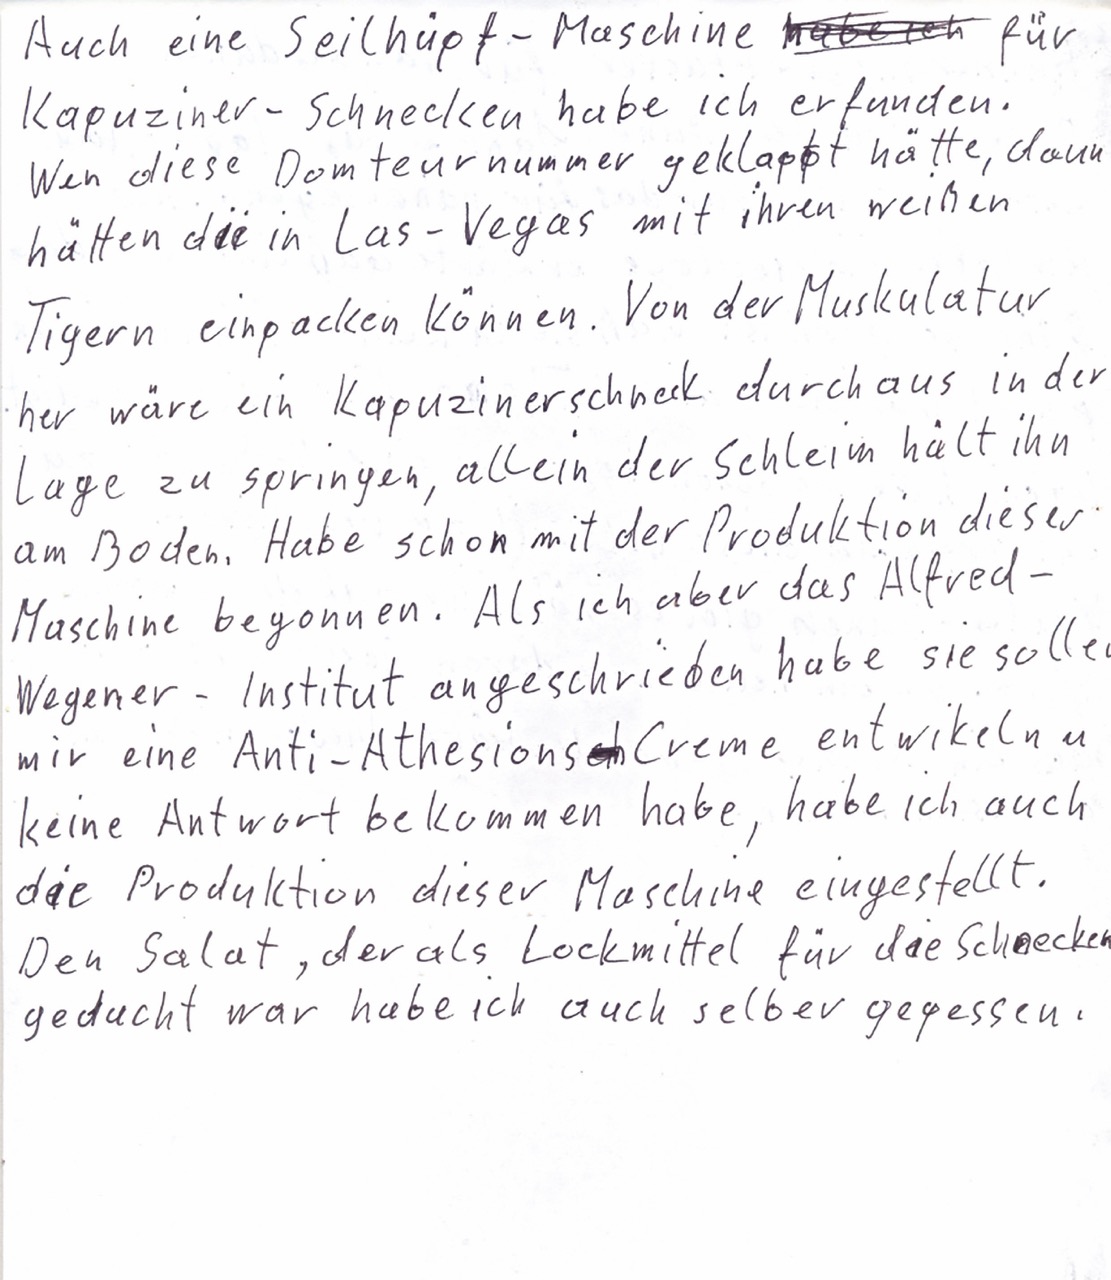 Auch eine Seilhüpf-Maschine habe ich für
Kapuziner-Schnecken habe ich erfunden.
Wen diese Domteurnummer geklappt hätte, dann
hätten die in Las-Vegas mit ihren weißen
Tigern einpacken können. Von der Muskulatur
her wäre ein Kapuzinerschneck durchaus in der
Lage zu springen, allein der Schleim hält ihn
am Boden. Habe schon mit der Produktion dieser
Maschine begonnen. Als ich aber das Alfred-
Wegener-Institut angeschrieben habe sie sollen
mir eine Anti-Athesions Creme entwikeln u
keine Antwort bekommen habe, habe ich auch
die Produktion dieser Maschine eingestellt.
Den Salat, der als Lockmittel für die Schnecken
gedacht war habe ich auch selber gegessen.